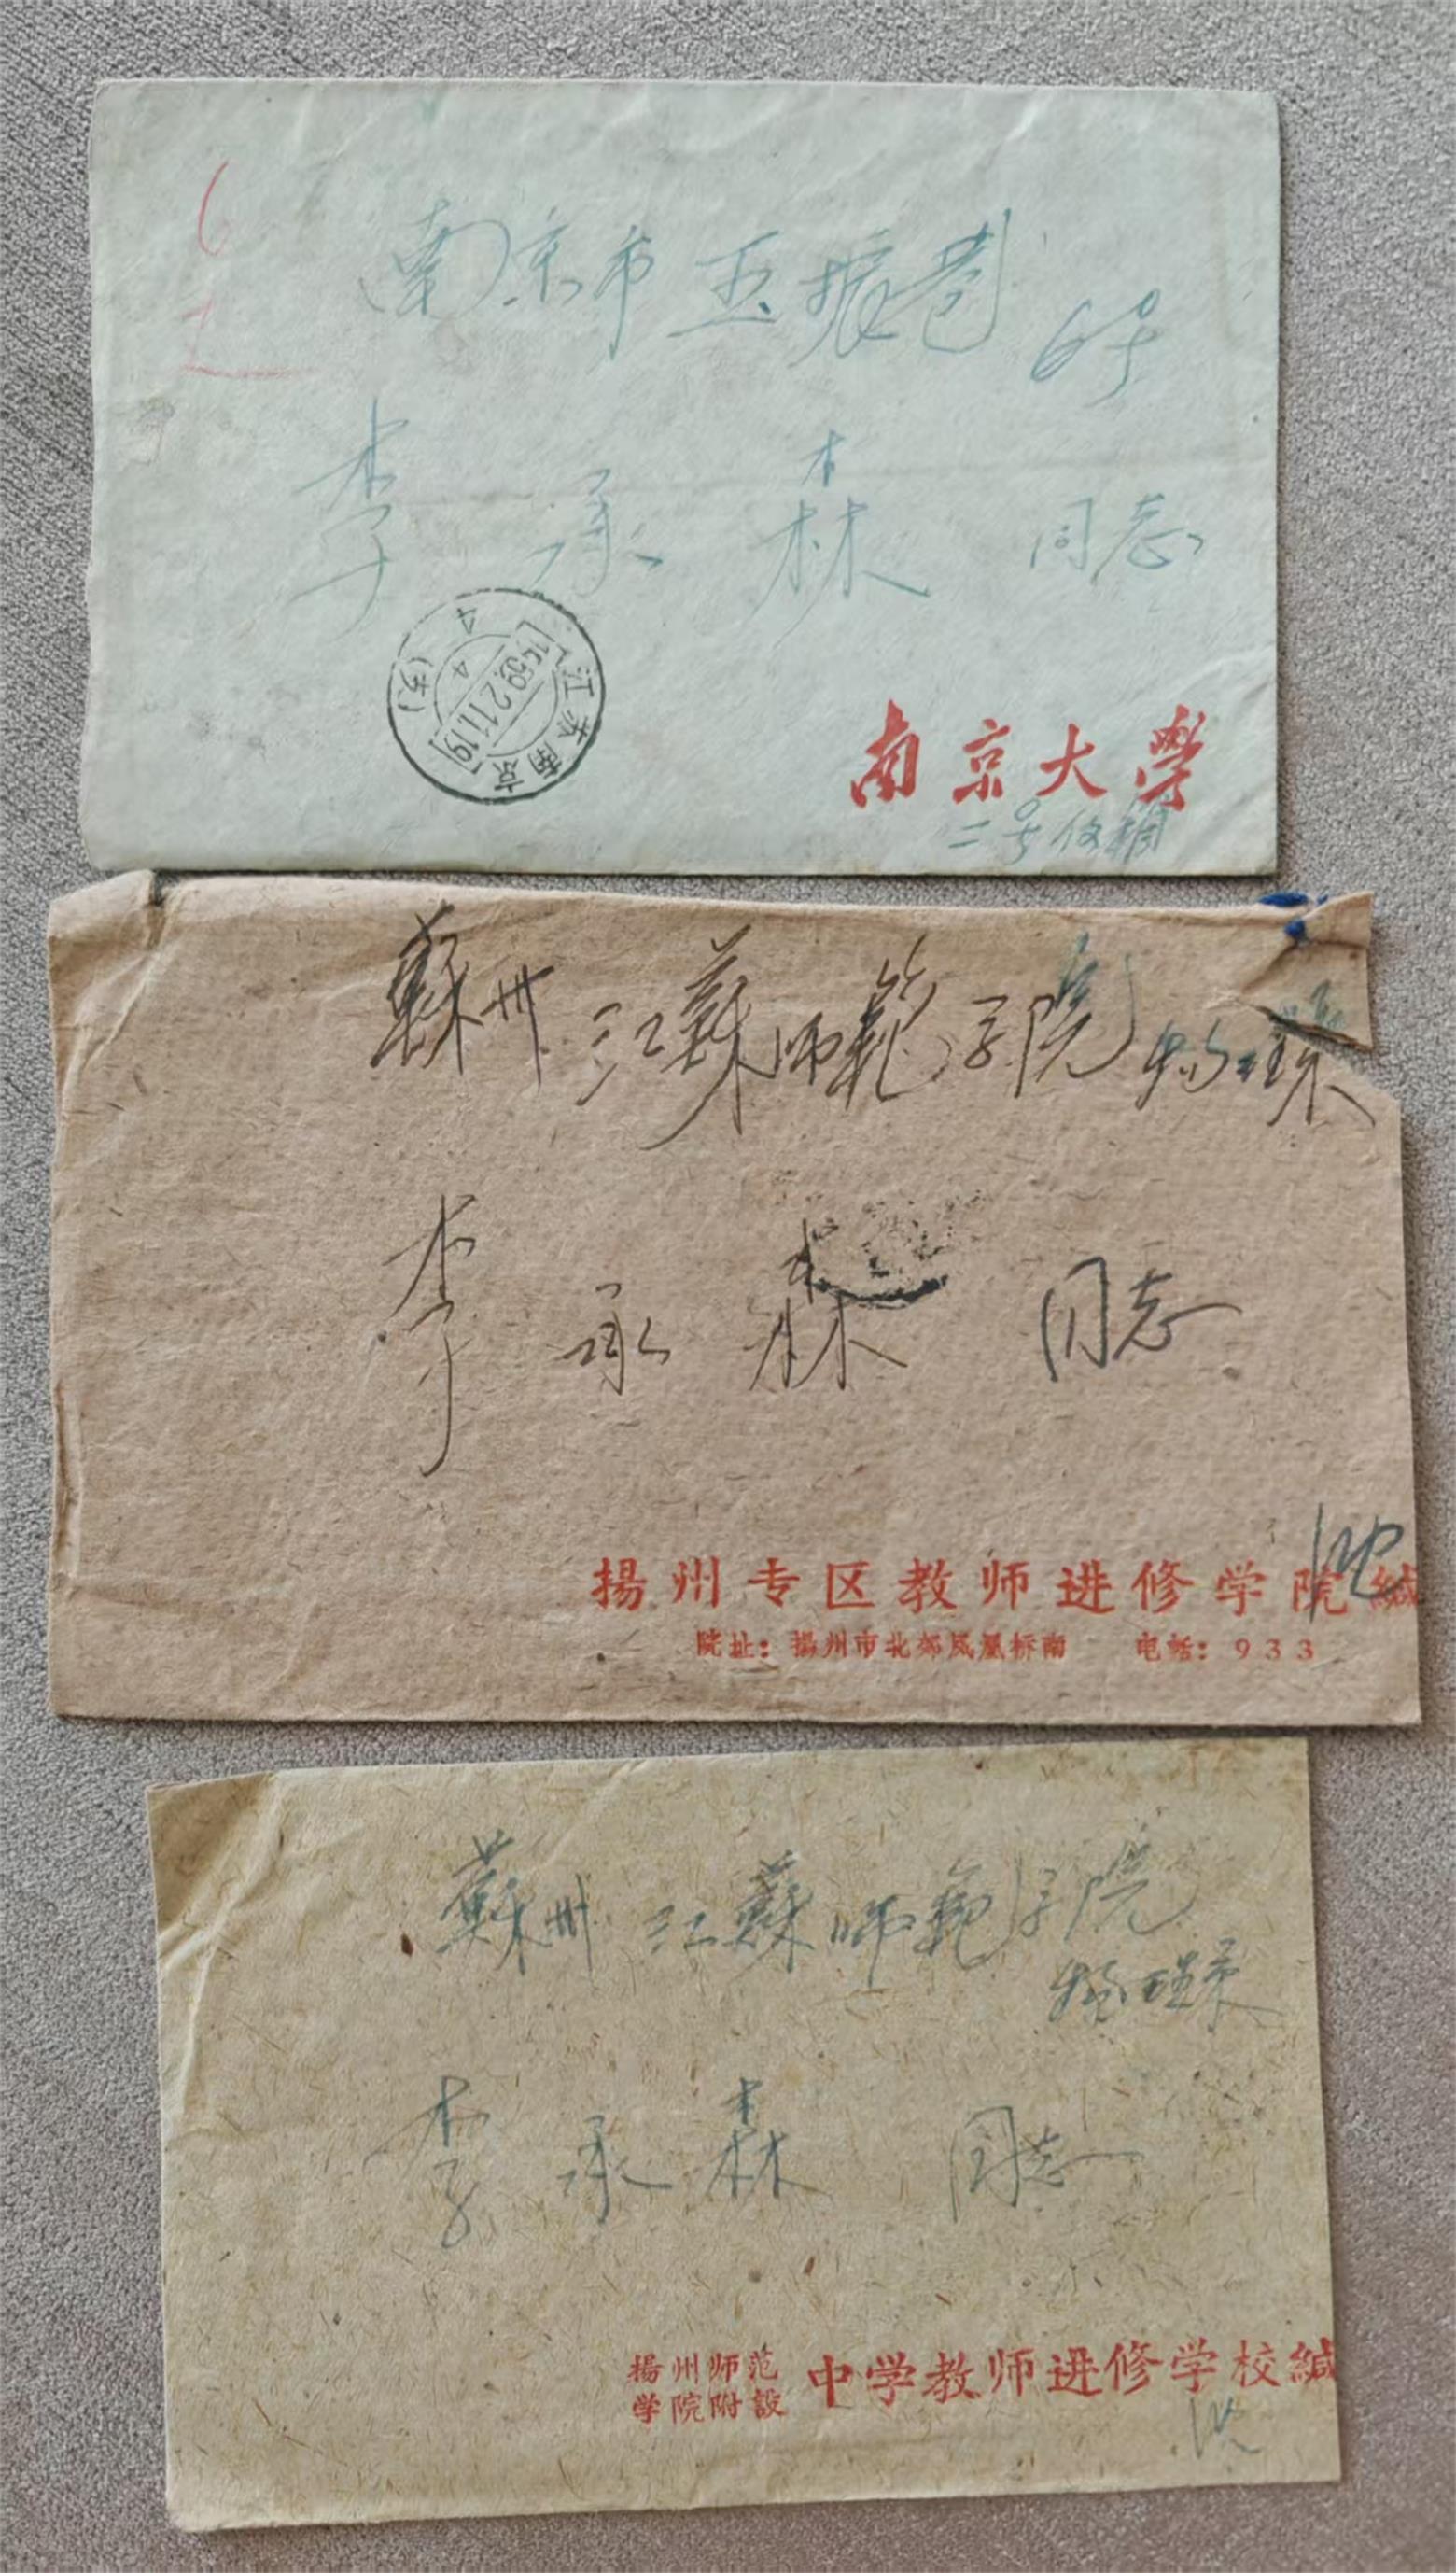 6
1
南京市五振巷
6号
李承森同志
江苏南京
59.2.11.19
4
4
(苏)
南京大学
二号信箱
蘇州江蘇师範学院物理系
李承森同志
沈
揚州专区教师进修学院缄
院址：揚州市北郊凤凰桥南 电话：933
蘇州江蘇师範学院
物理系
李承森同志
揚州师范
学院附設
中学教师进修学校缄
沈